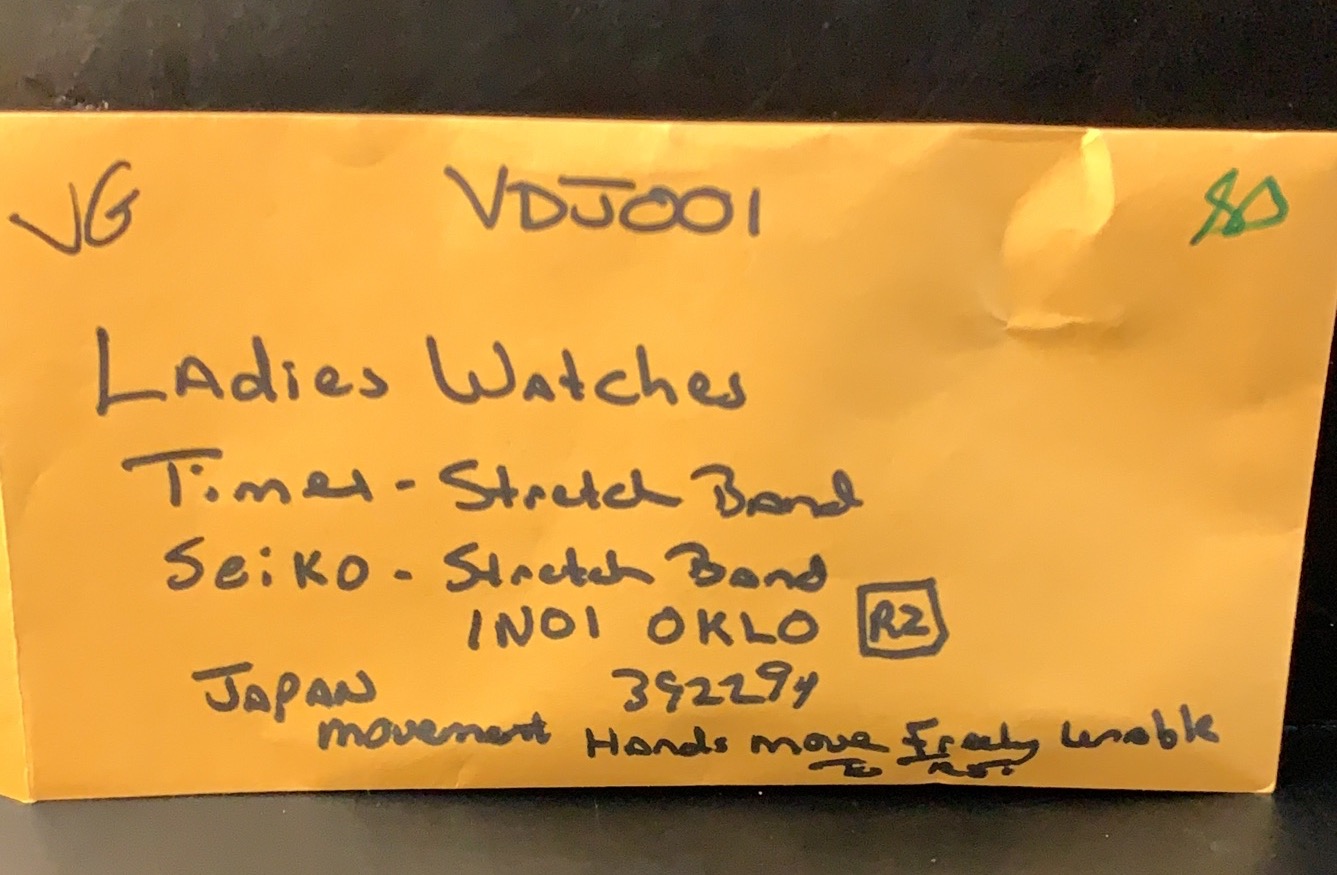 VG VDJ001
LAdies Watches
Timex - Stretch Band
Seiko - Stretch Band
1N01 OKLO R2
JAPAN 392294
movement Hands move Freely Unable
To